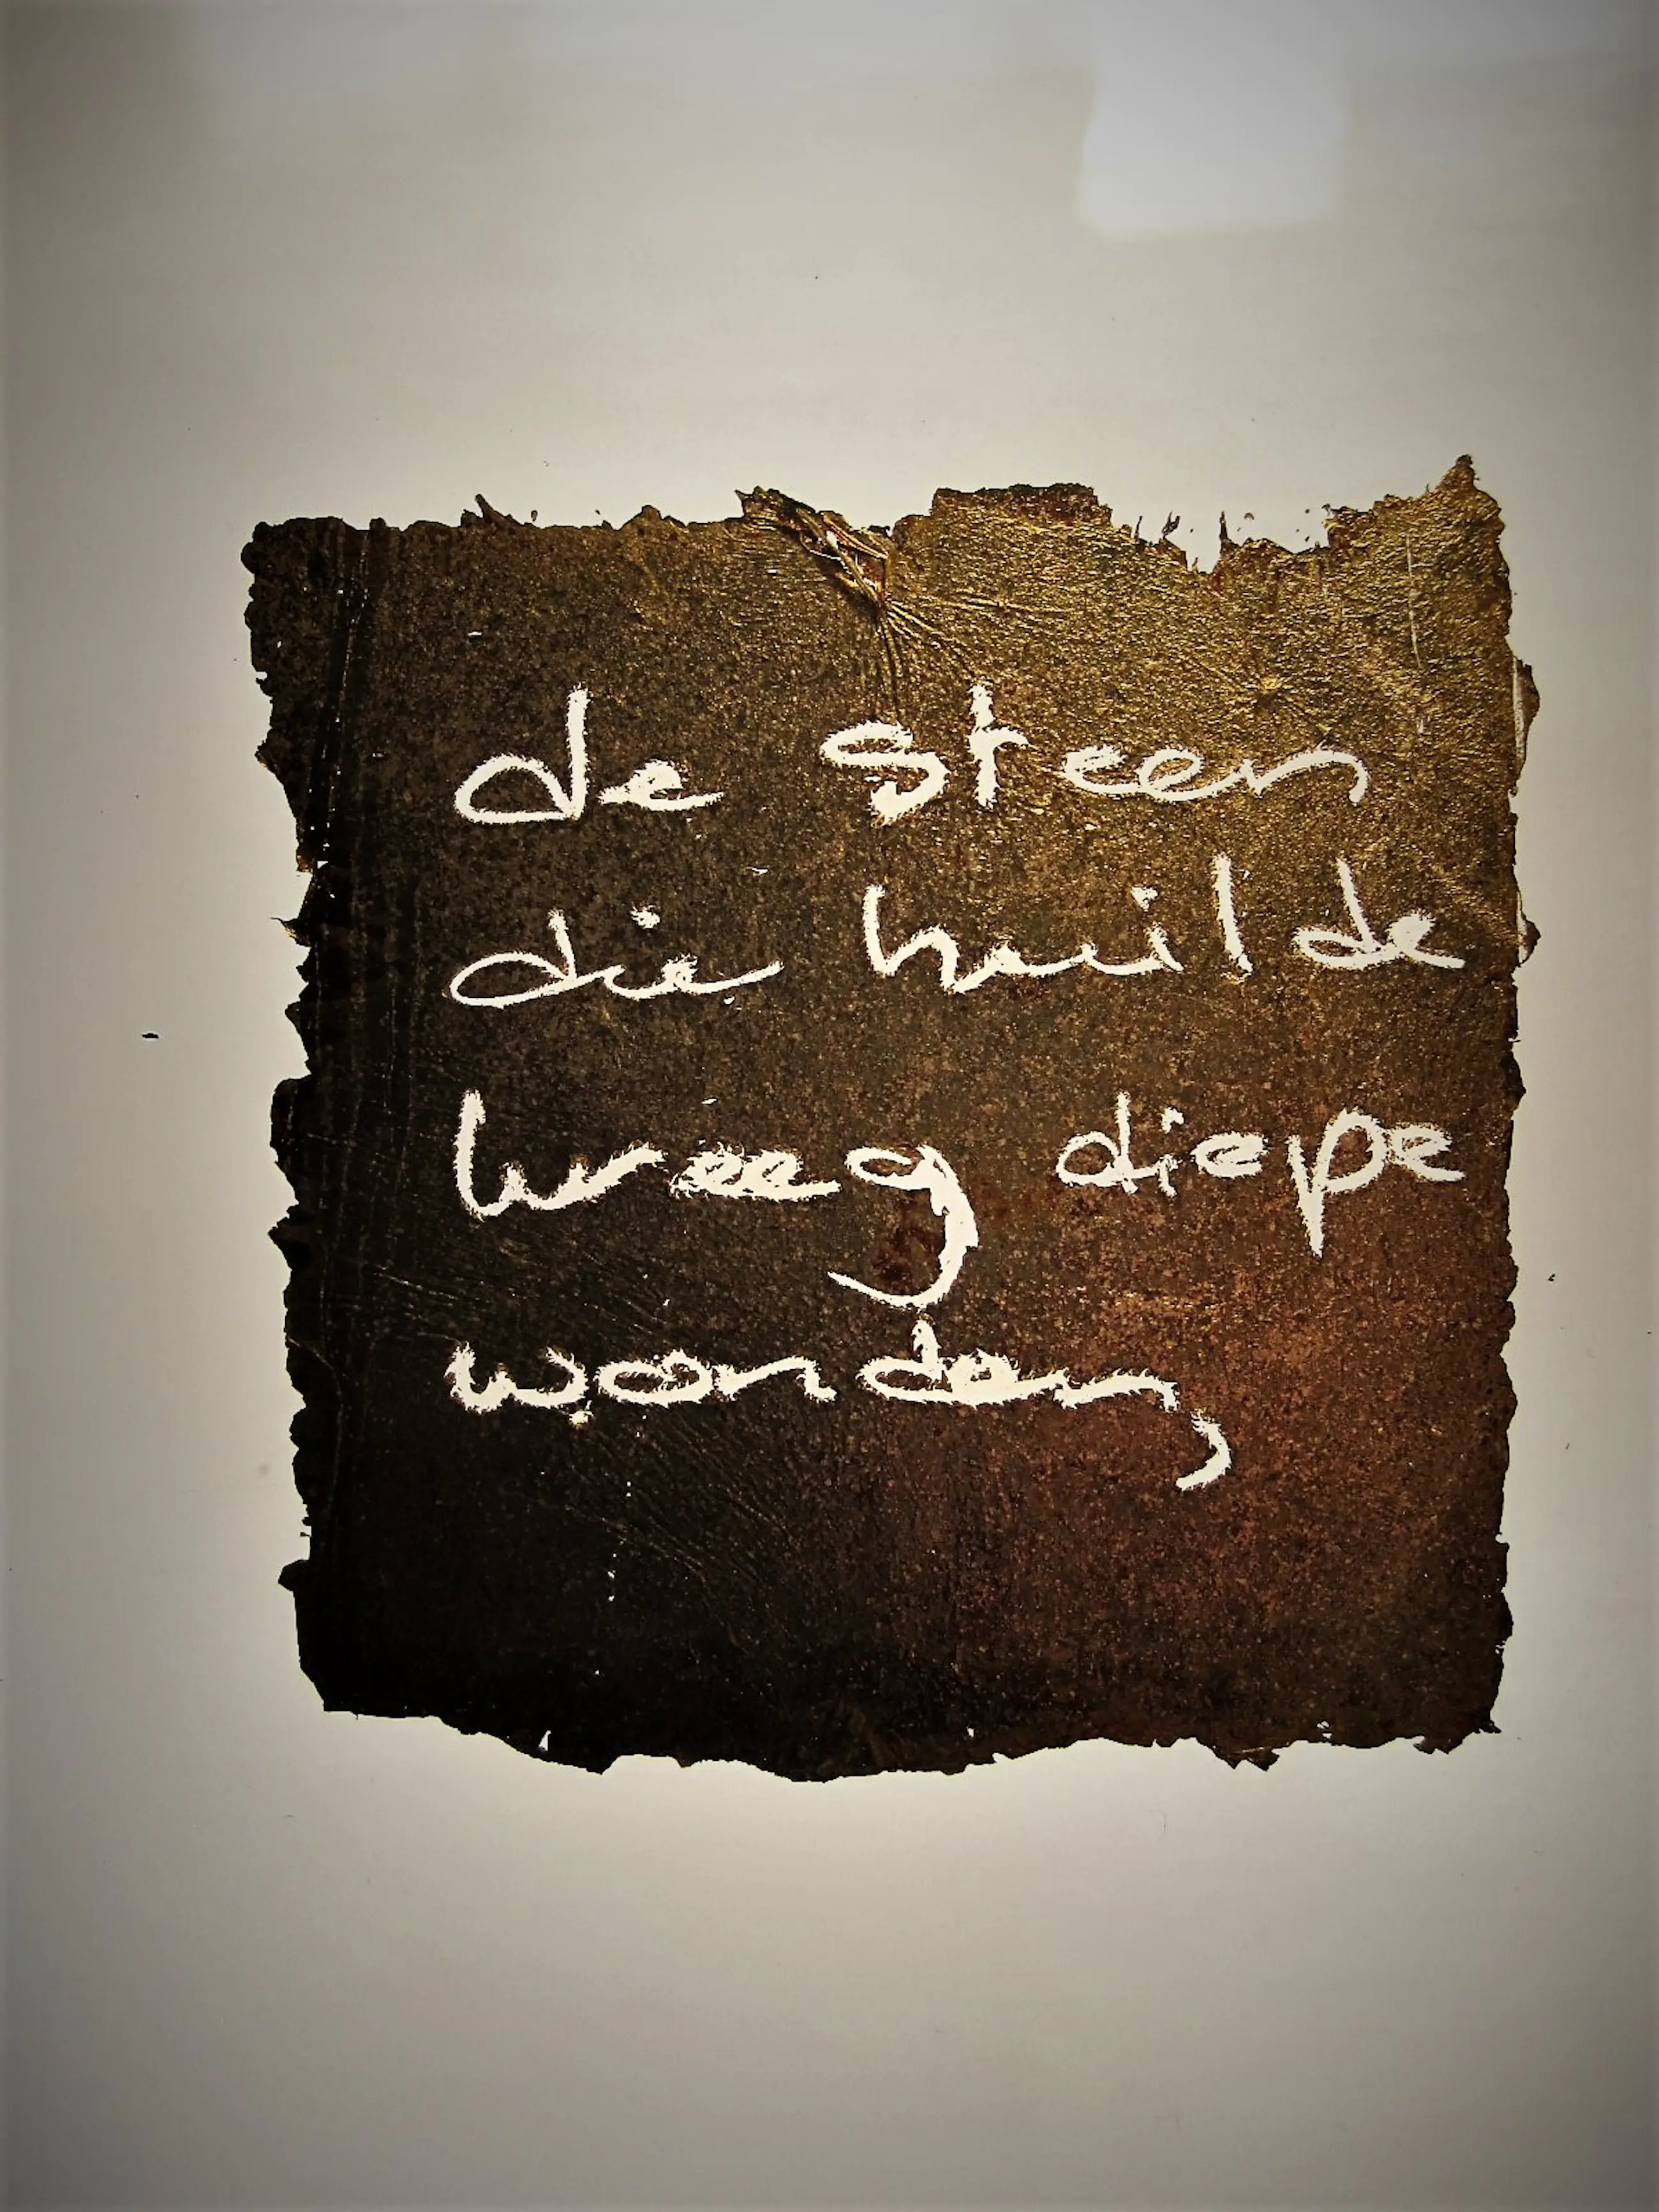 de steen
die huilde
kreeg diepe
wonden,